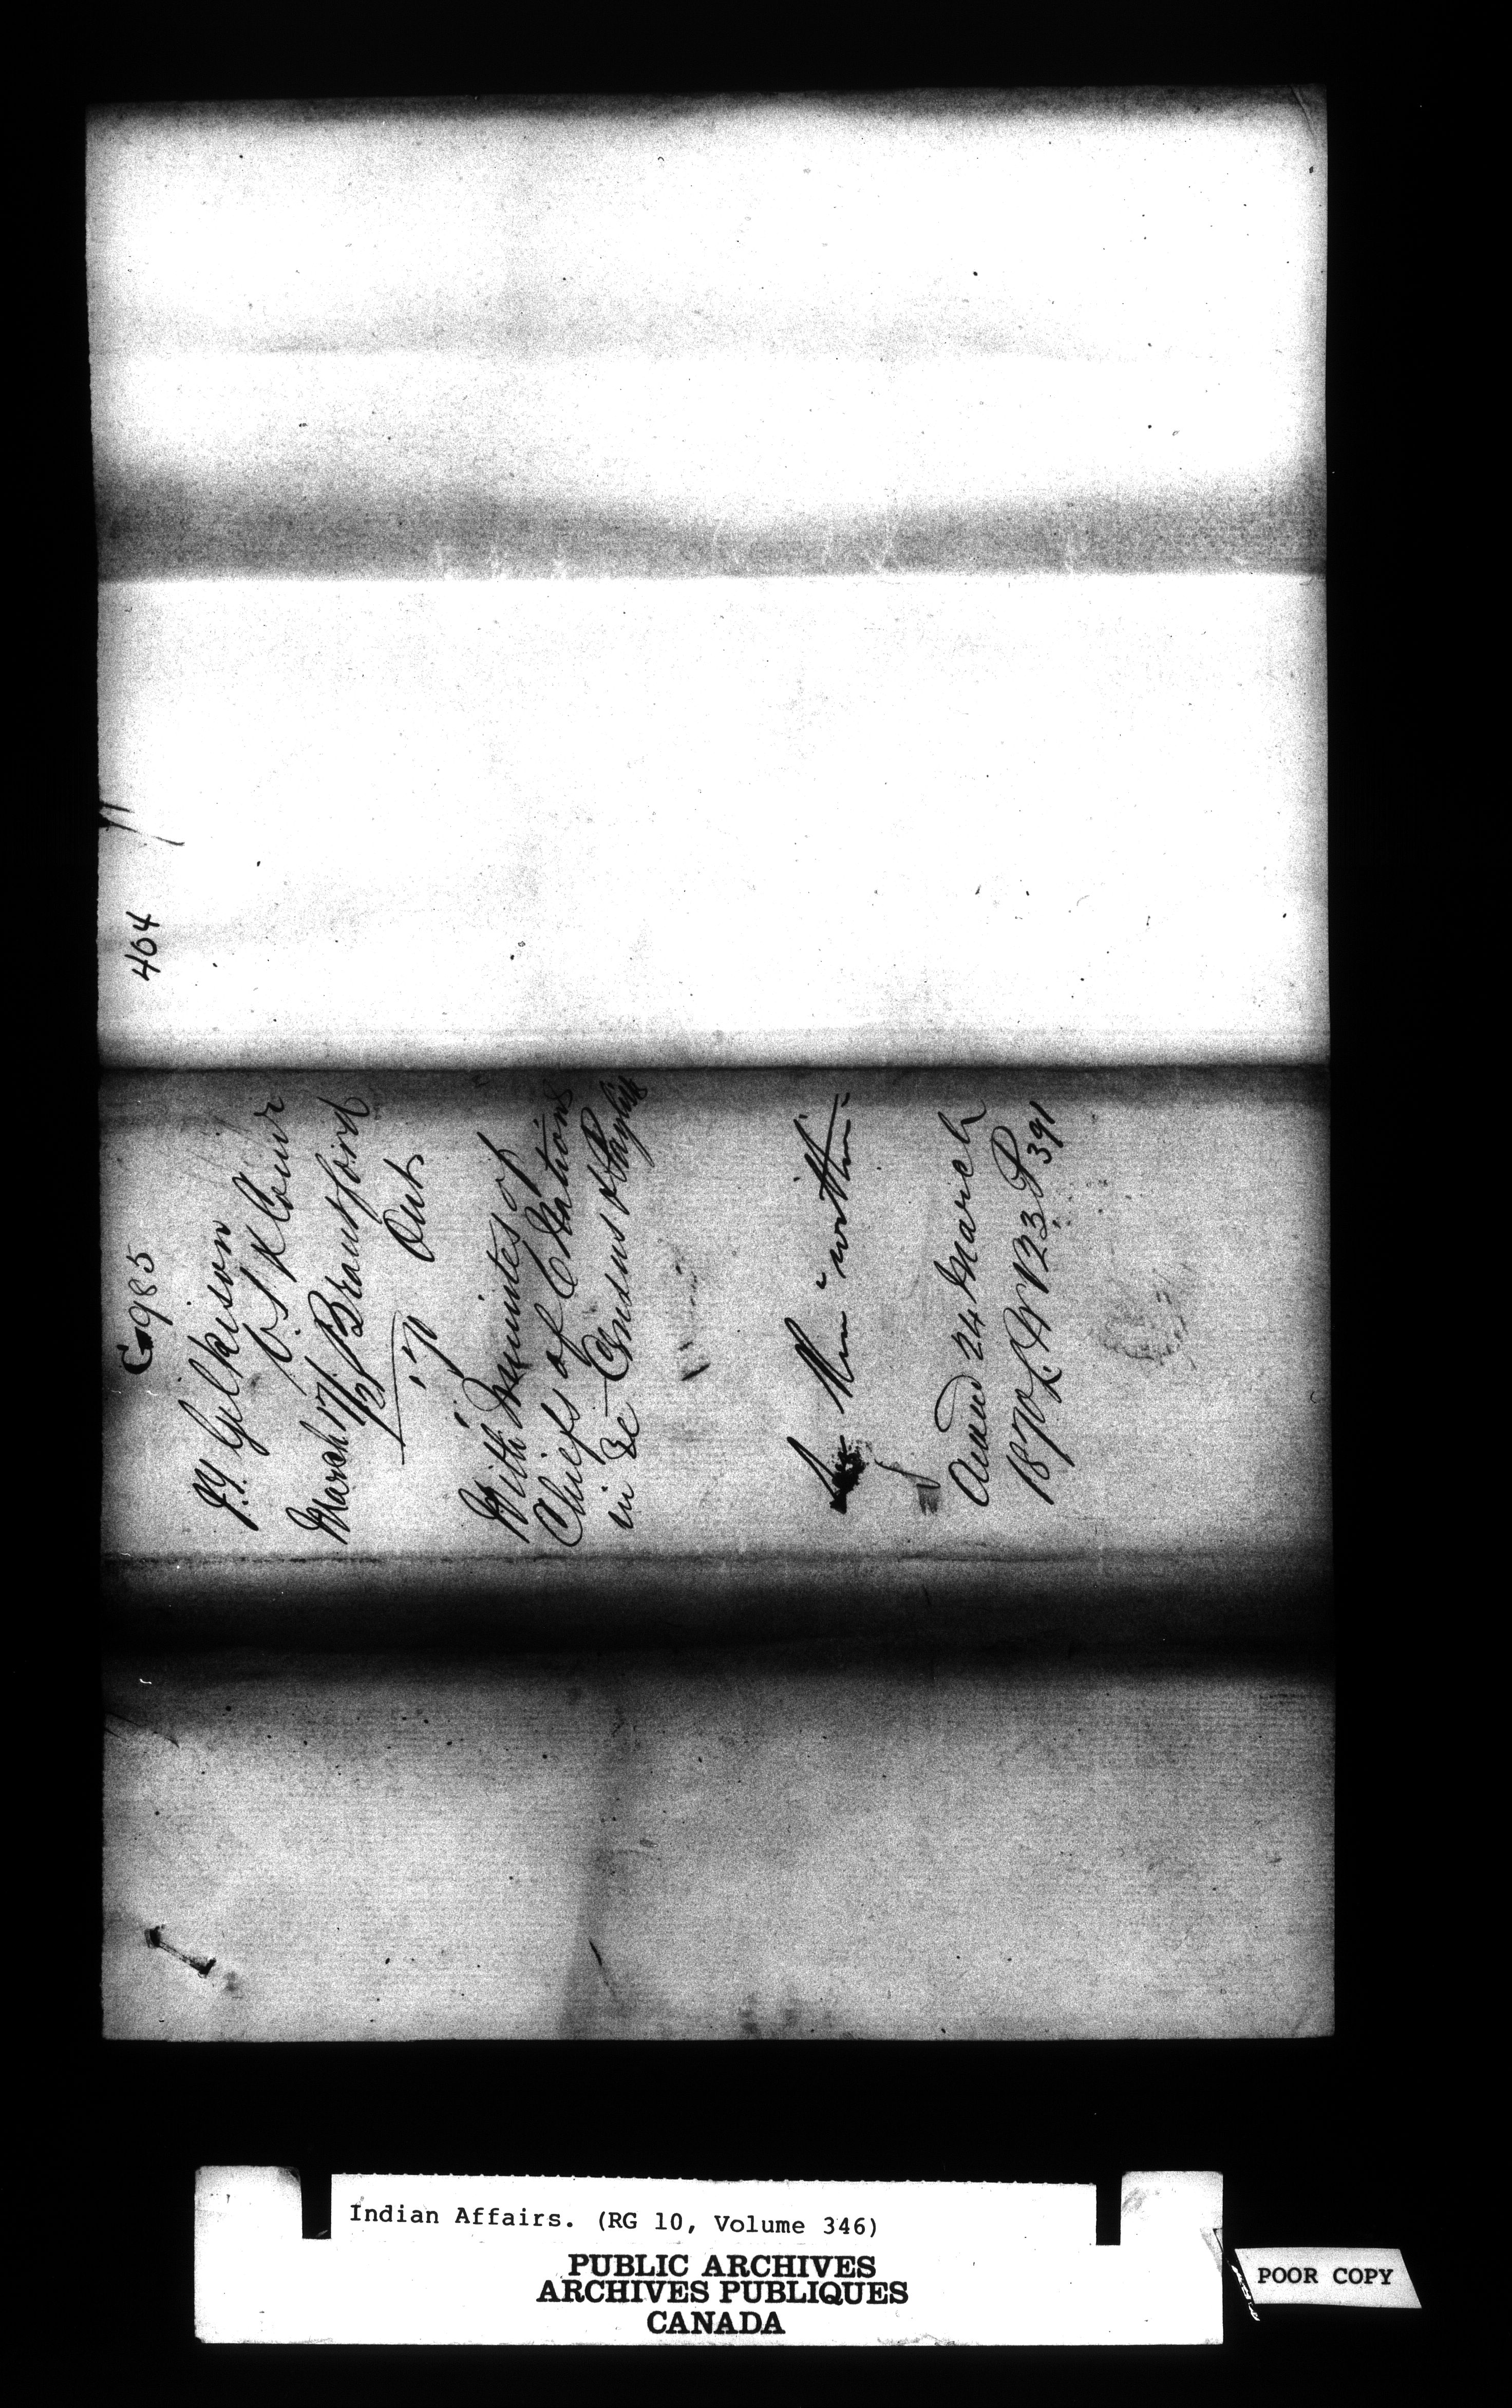 404
G 985
J.T. Gilkison
V.S. & Comr
March 17/70 Brantford
Ont
With Minutes of
Chiefs of 6 Nations
in Re Census &
within
Ansd 24 March
1870 L B 3 P 391
Indian Affairs. (RG 10, Volume 346)
PUBLIC ARCHIVES
ARCHIVES PUBLIQUES
CANADA
POOR COPY